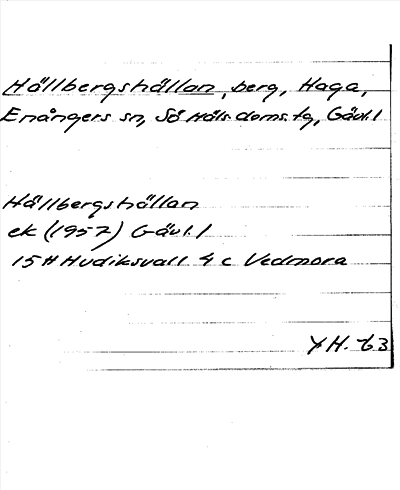 Hällbergshällan, berg, Haga,
Enångers sn, Sö Häls. doms. tg, Gävl. l
Hällbergshällan
ek (1957) Gävl. l
15 H Hudiksvall 4 c Vedmora
YH. 63